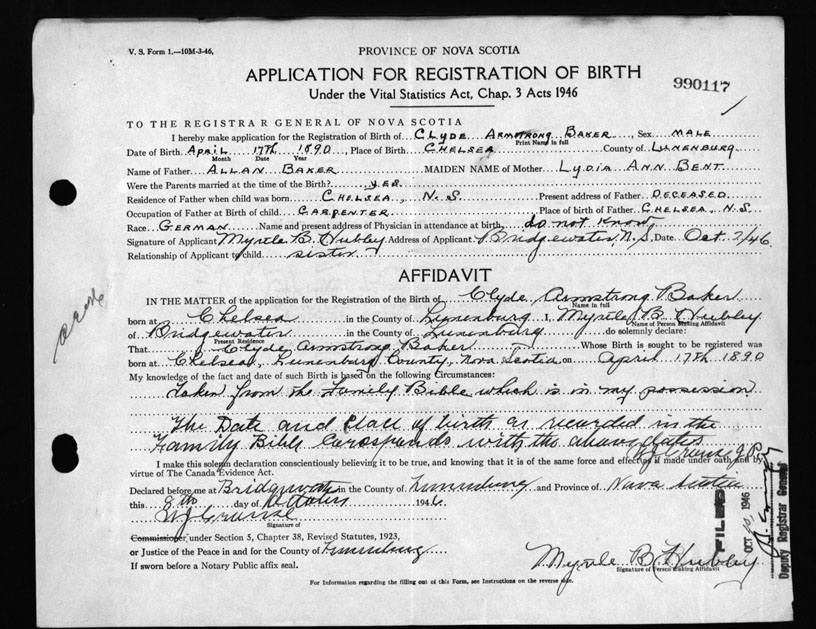 V. S. Form 1.—10M-3-46.
PROVINCE OF NOVA SCOTIA
APPLICATION FOR REGISTRATION OF BIRTH
Under the Vital Statistics Act, Chap. 3 Acts 1946
990117
TO THE REGISTRAR GENERAL OF NOVA SCOTIA
I hereby make application for the Registration of Birth of CLYDE ARMSTRONG BAKER, Sex MALE
Print Name in full
Date of Birth APRIL 17th 1890, Place of Birth CHELSEA County of LUNENBURG
Month Date Year
Name of Father ALLAN BAKER MAIDEN NAME of Mother LYDIA ANN BENT.
Were the Parents married at the time of the Birth? YES.
Residence of Father when child was born CHELSEA, N.S. Present address of Father DECEASED
Occupation of Father at Birth of child CARPENTER Place of birth of Father CHELSEA, N.S.
Race GERMAN Name and present address of Physician in attendance at birth, do not know
Signature of Applicant Myrtle B. Hubley Address of Applicant Bridgewater, N.S. Date Oct 7/46.
Relationship of Applicant to child sister
AFFIDAVIT
IN THE MATTER of the application for the Registration of the Birth of Clyde Armstrong Baker
Name in full
born at Chelsea in the County of Lunenburg I, Myrtle B. Hubley
Name of Person Making Affidavit
of Bridgewater in the County of Lunenburg do solemnly declare:
Present Residence
That Clyde Armstrong Baker Whose Birth is sought to be registered was
born at Chelsea, Lunenburg County, Nova Scotia on April 17th 1890
My knowledge of the fact and date of such Birth is based on the following Circumstances:
Taken from the Family Bible which is in my possession
The Date and Place of birth as recorded in the
Family Bible Corosponds with the above dates
J.P.
I make this solemn declaration conscientiously believing it to be true, and knowing that it is of the same force and effect as if made under oath and by
virtue of The Canada Evidence Act.
Declared before me at Bridgewater in the County of Lunenburg and Province of Nova Scotia
this 8th day of October 1946.
Signature of
Commissioner, under Section 5, Chapter 38, Revised Statutes, 1923,
or Justice of the Peace in and for the County of Lunenburg
If sworn before a Notary Public affix seal.
Myrtle B. Hubley
Signature of Person Making Affidavit
For Information regarding the filling out of this Form, see Instructions on the reverse side.
FILED
OCT 10 1946
Deputy Registrar General